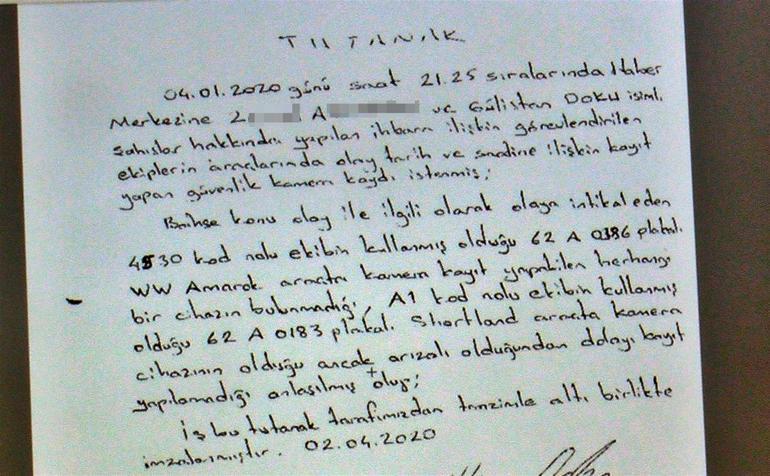 TUTANAK
04.01.2020 günü saat 21.25 sıralarında Haber
Merkezine Z A ve Gülistan DOKU isimli
şahıslar hakkında yapılan ihbara ilişkin görevlendirilen
ekiplerin araçlarında olay tarih ve saatine ilişkin kayıt
yapan güvenlik kamera kaydı istenmiş;
Bahse konu olay ile ilgili olarak olaya intikal eden
4530 kod nolu ekibin kullanmış olduğu 62 A 0386 plakalı
WW Amarok araçta kamera kayıt yapabilen herhangi
bir cihazın bulunmadığı, A1 kod nolu ekibin kullanmış
olduğu 62 A 0183 plakalı Shortland araçta kamera
cihazının olduğu ancak arızalı olduğundan dolayı kayıt
yapılamadığı anlaşılmış olup;
İş bu tutanak tarafımızdan tanzimle altı birlikte
imzalanmıştır. 02.04.2020